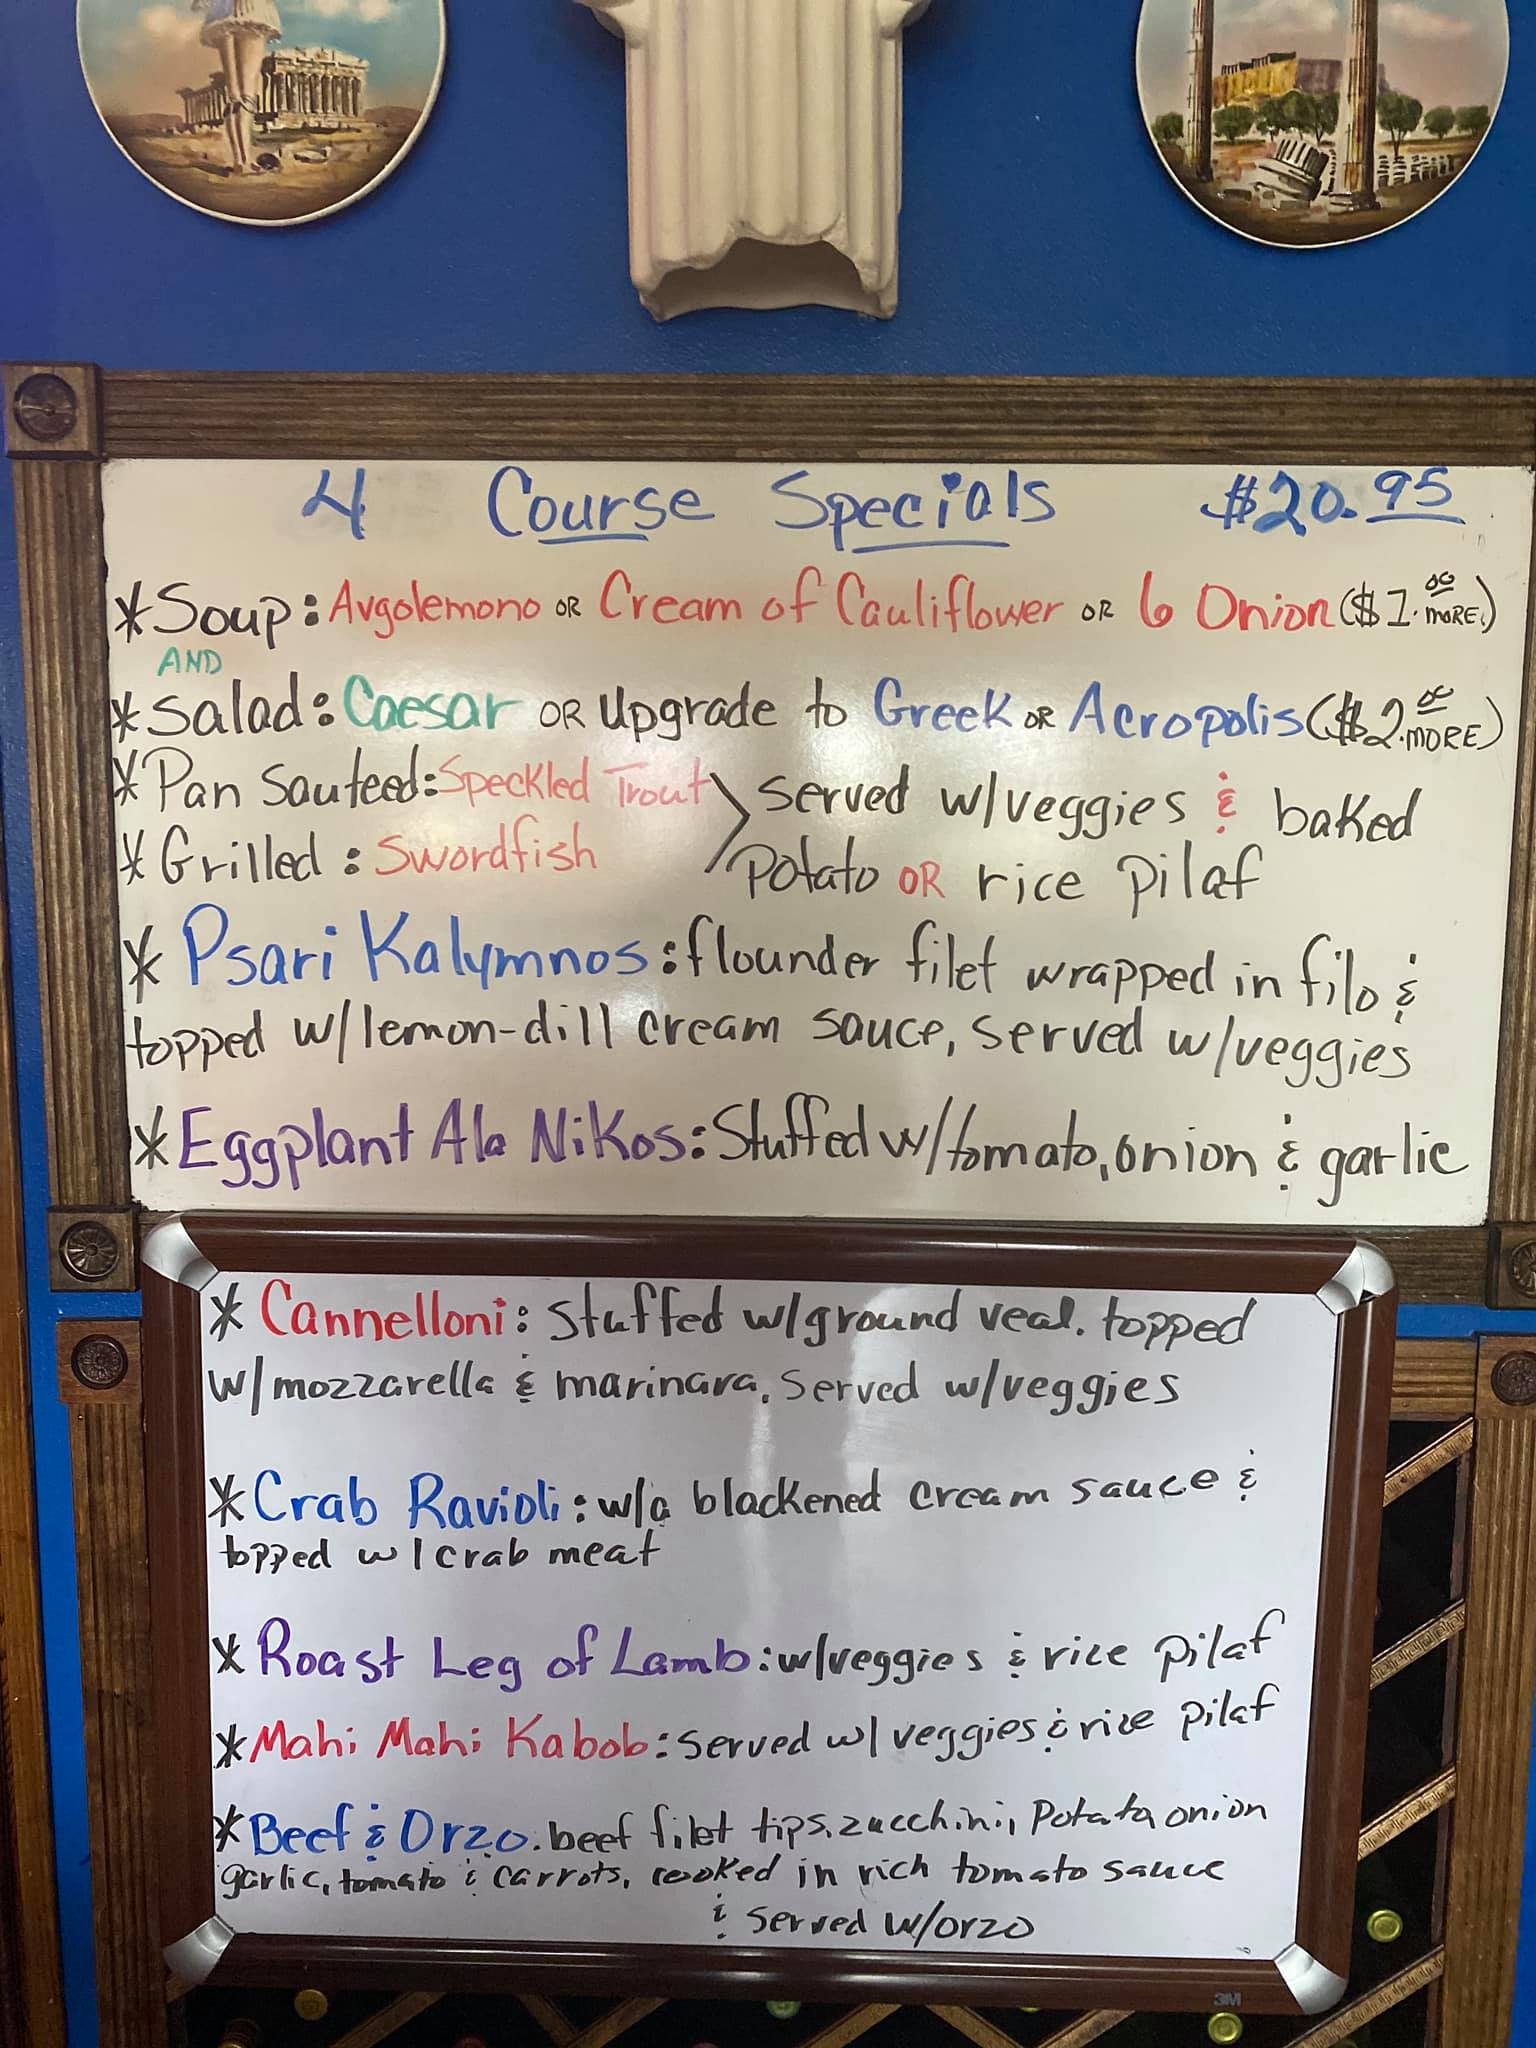 4 Course Specials $20.95
*Soup: Avgolemono OR Cream of Cauliflower OR 6 Onion ($1.00 MORE.)
AND
*Salad: Caesar OR Upgrade to Greek OR Acropolis ($2.00 MORE)
*Pan Sauteed: Speckled Trout > served w/veggies & baked
*Grilled: Swordfish potato OR rice pilaf
*Psari Kalymnos: flounder filet wrapped in filo &
topped w/lemon-dill cream sauce, served w/veggies
*Eggplant Ala Nikos: Stuffed w/tomato, onion & garlic
*Cannelloni: stuffed w/ground veal. topped
w/mozzarella & marinara, served w/veggies
*Crab Ravioli: w/a blackened cream sauce &
topped w/crab meat
*Roast Leg of Lamb: w/veggies & rice pilaf
*Mahi Mahi Kabob: served w/veggies & rice pilaf
*Beef & Orzo. beef filet tips, zucchini, potato, onion
garlic, tomato & carrots, cooked in rich tomato sauce
& served w/orzo
3M